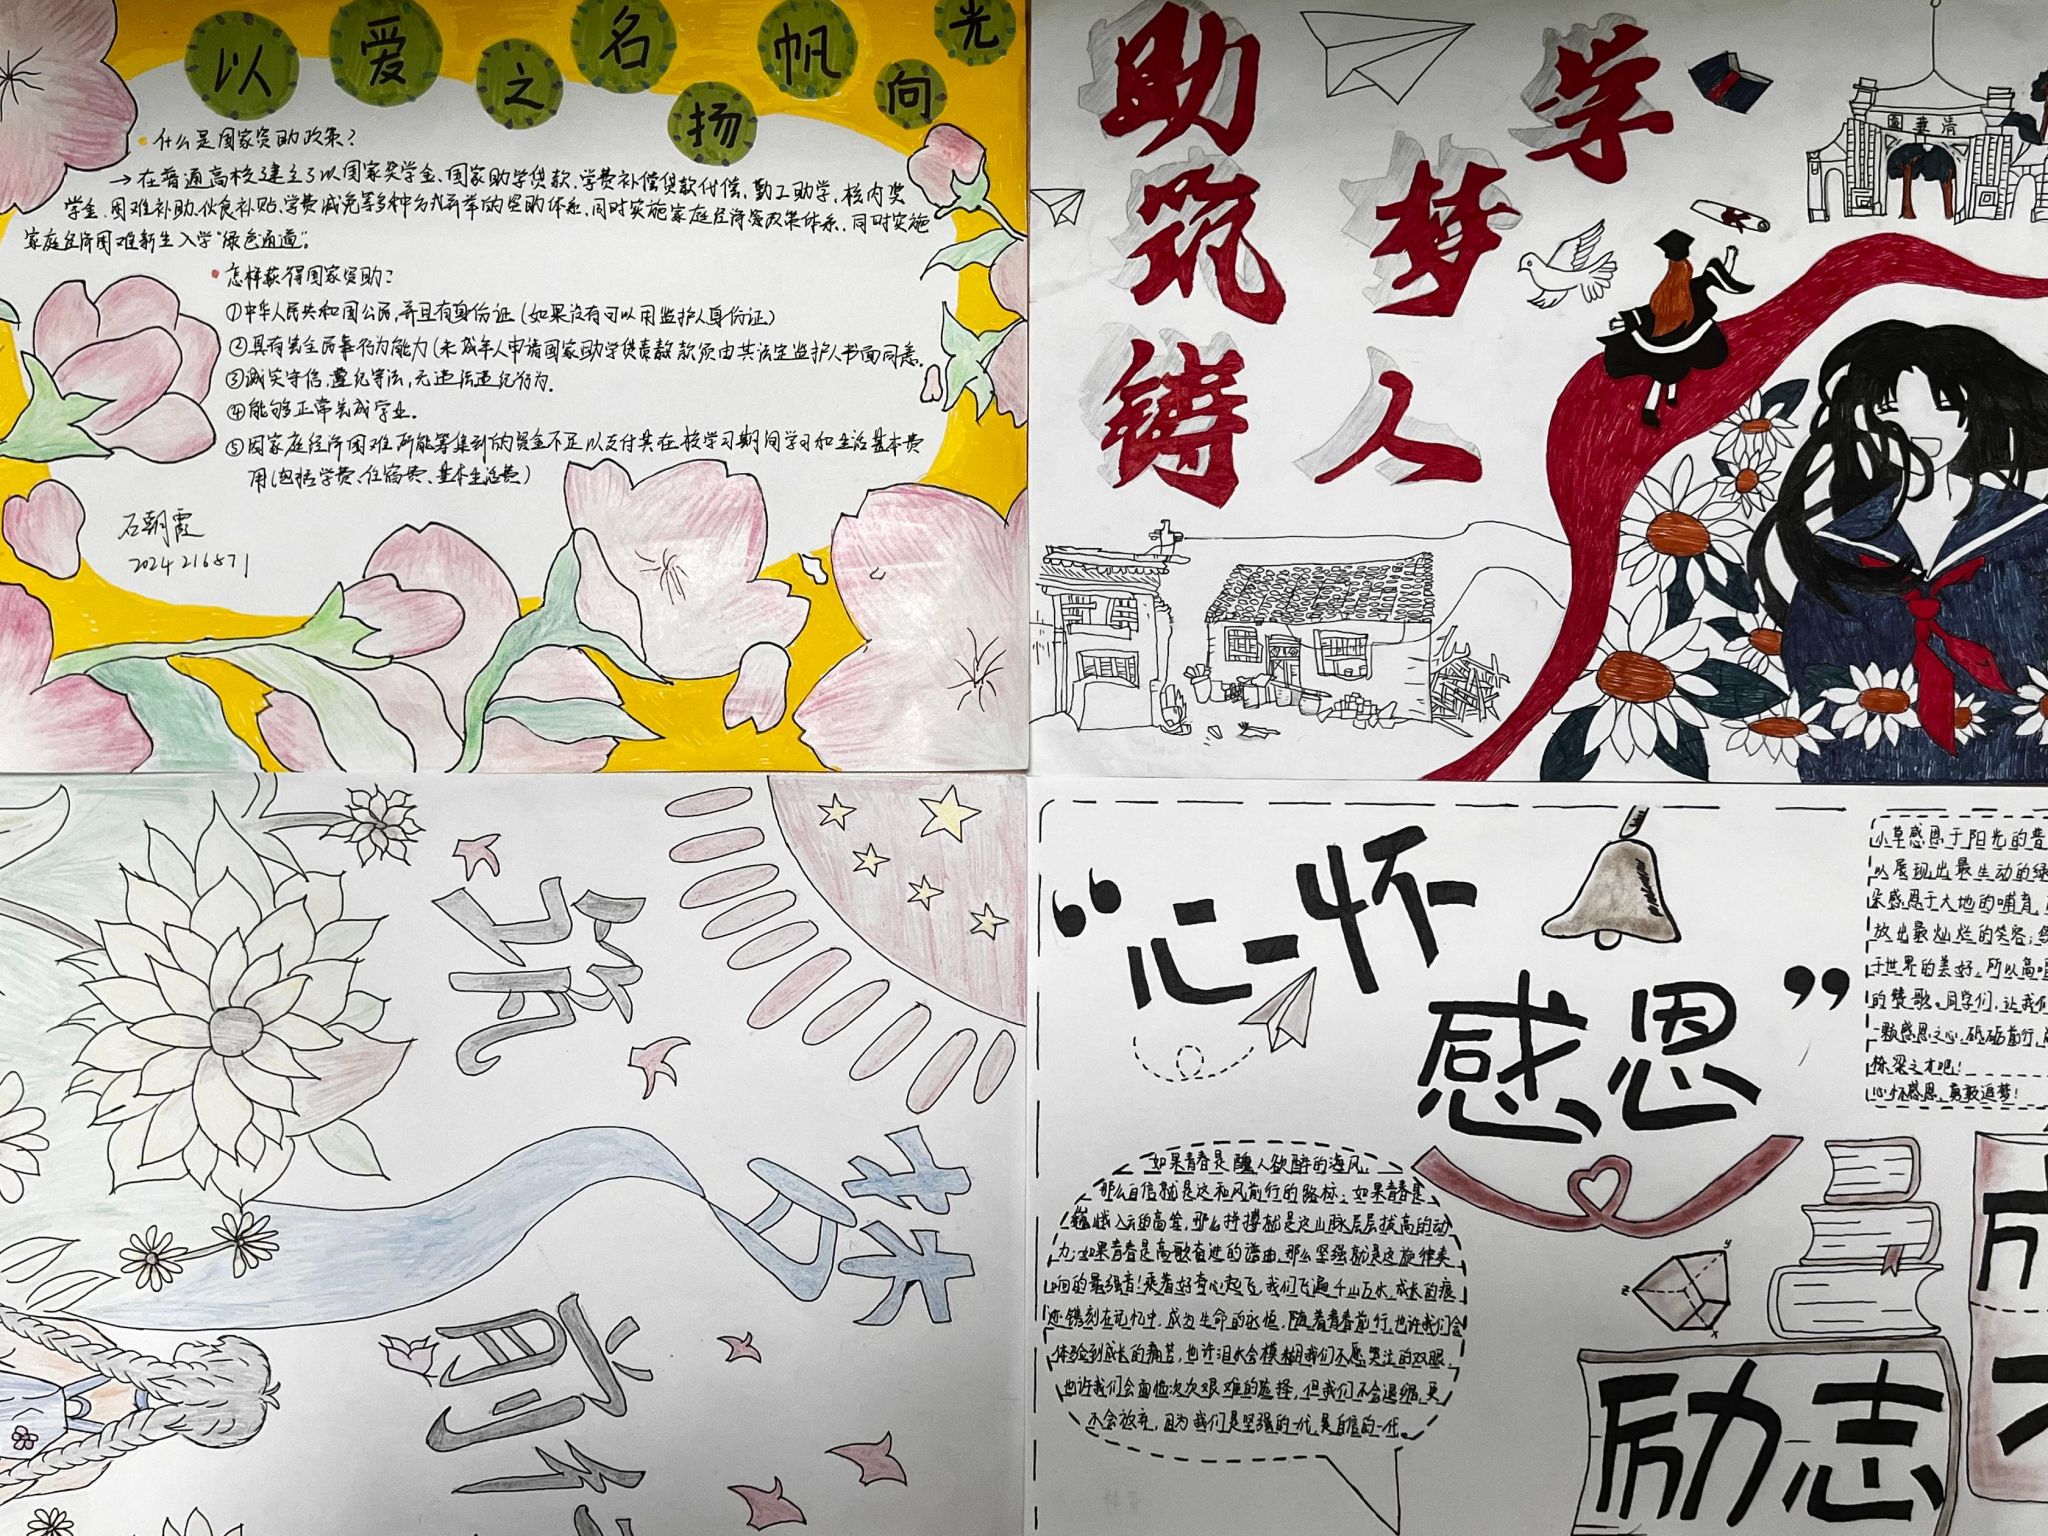 以爱之名扬帆向光
什么是国家资助政策?
→在普通高校建立了以国家奖学金、国家助学贷款、学费补偿贷款代偿、勤工助学、校内奖
学金、困难补助、伙食补贴、学费减免等多种方式并举的资助体系,同时实施家庭经济
家庭经济困难新生入学“绿色通道”。
怎样获得国家资助?
①中华人民共和国公民,并且有身份证(如果没有可以用监护人身份证)
②具有完全民事行为能力(未成年人申请国家助学贷款须由其法定监护人书面同意。
③诚实守信,遵纪守法,无违法违纪行为。
④能够正常完成学业。
⑤因家庭经济困难所能筹集到的资金不足以支付其在校学习期间学习和生活基本费
用(包括学费、住宿费、基本生活费)
石朝霞
2024216871
助学
筑梦
铸人
清華園
筑
梦
前行
“心怀
感恩”
小草感恩于阳光的
以展现出最生动的绿
朵感恩于大地的哺育,
放出最灿烂的笑容;
于世界的美好,所以高唱
的赞歌。同学们,让我们
一颗感恩之心,砥砺前行,
栋梁之才吧!
心怀感恩,勇敢追梦!
如果青春是醺人欲醉的海风,
那么自信就是这和风前行的路标;如果青春是
巍峨入云的高峰,那么拼搏就是这山脉层层拔高的动
力;如果青春是高歌奋进的谱曲,那么坚强就是这旋律奏
响的最强音!乘着好奇心起飞,我们飞遍千山万水,成长的痕
迹镌刻在记忆中,成为生命的永恒,随着青春前行,也许我们会
体验到成长的痛苦,也许泪水会模糊我们不愿哭泣的双眼,
也许我们会面临次次艰难的选择,但我们不会退缩,更
不会放弃,因为我们是坚强的一代,是自信的一代。
z
y
x
励志